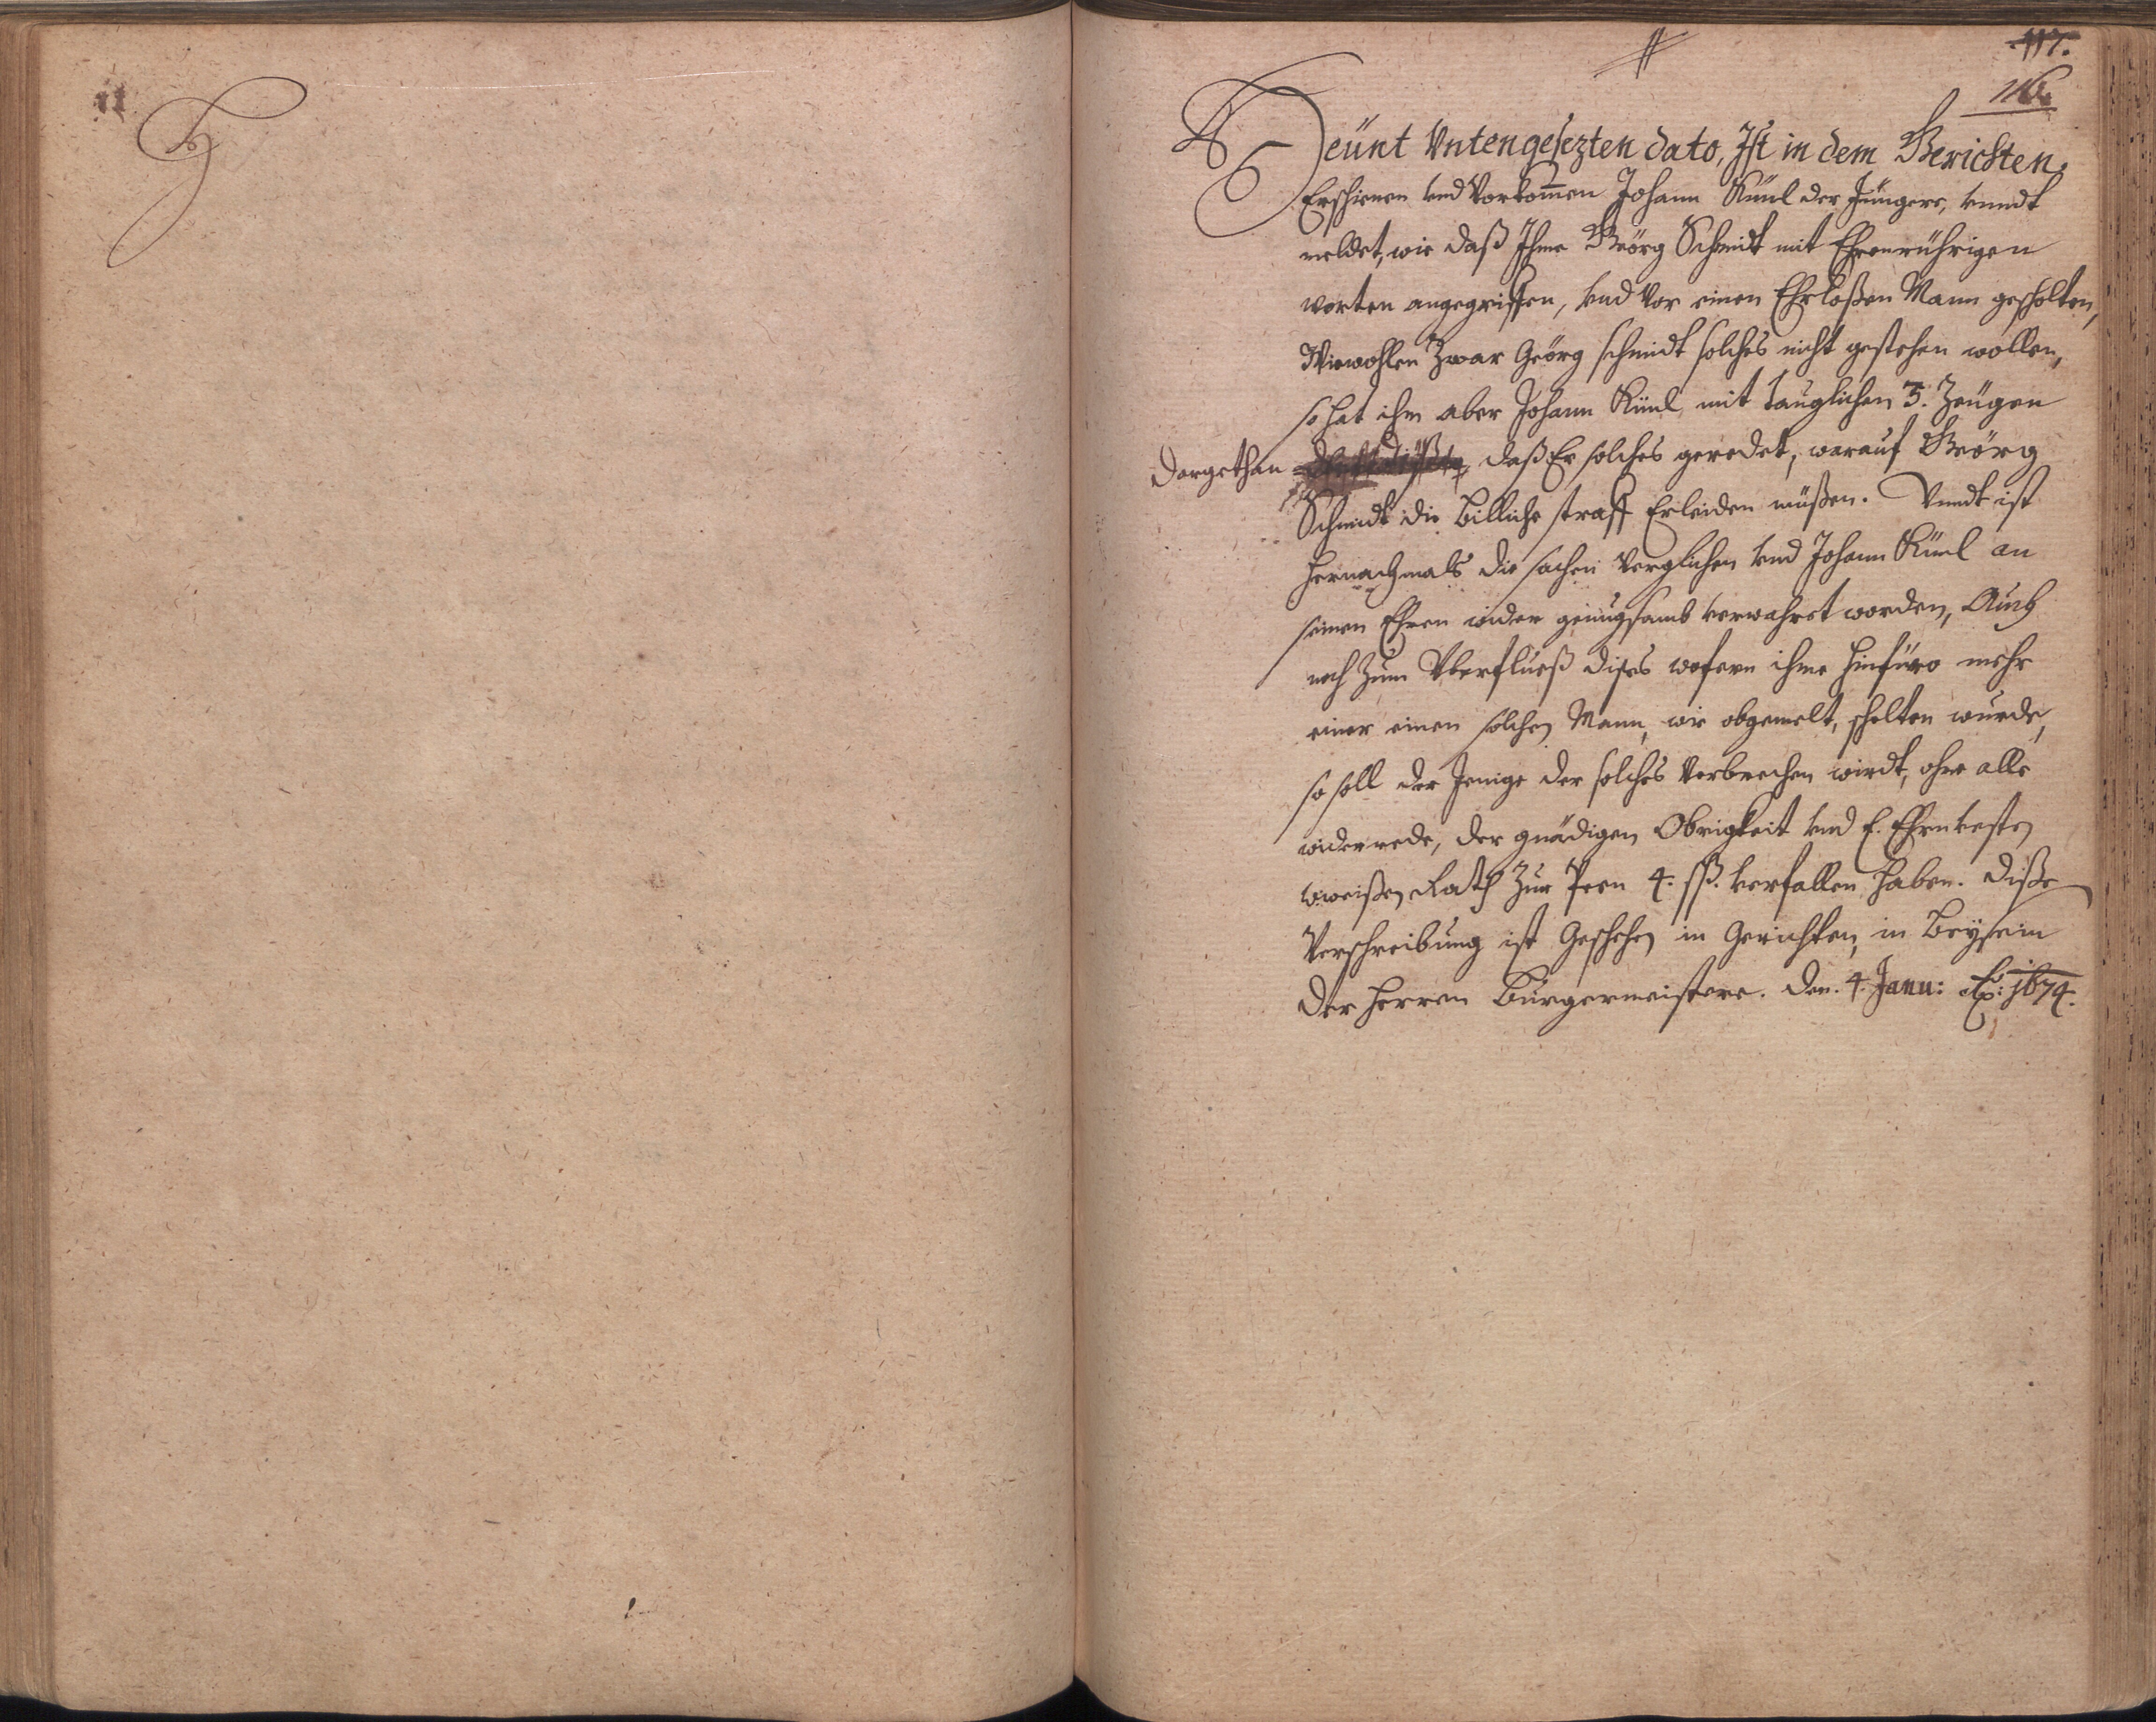 117.
116.
Heünt Vntengesezten dato, Ist in dem Gerichten,
Erschienen vnd Vorkom̄en Johann Künl der Jüngere, vnndt
meldet, wie daß Ihme Geörg Schmidt mit Ehrenrührigen
worten angegriffen, vnd Vor einen Ehrloßen Mann gescholten,
Wiewohlen Zwar Geörg schmidt solches nicht gestehen wollen,
so hat ihm aber Johann Künl mit tauglichen 3. Zeügen
dargethan daß Er solches geredet, warauf Geörg
Schmidt die billiche straff Erleiden müßen. Vnndt ist
hernachmals die sachen Verglichen vnd Johann Künl an
seinen Ehren wider genugsamb verwahret worden, Auch
noch Zum Vberflueß dises wofern ihme hinfüro mehr
einer einen solchen Mann, wie obgemelt, schelten wurde,
so soll der Jenige der solches Verbrechen wirdt, ohne alle
widerrede, der gnädigen Obrigkeit vnd E. Ehrnvesten
w.weißen Rath Zur Peen 4. ßß. verfallen haben. Diße
Verschreibung ist Geschehen in Gerichten, in beysein
der Herren Bürgermeistere. Den. 4. Janu: Ao: 1674.